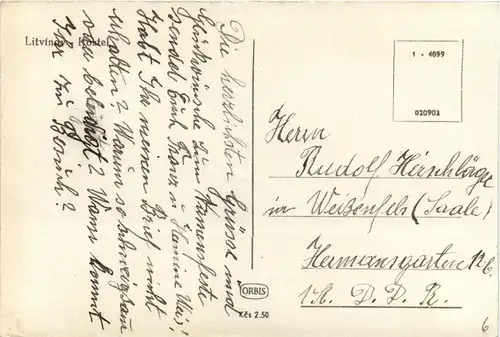 Litvínov - Kostel
Die herzlichsten Grüsse und
Glückwünsche zum Namensfeste
sendet Euch Franz u. Hermine
Habt Ihr meinen Brief nicht
erhalten? Warum so schweigsam
oder beleidigt? Wann kommt
Ihr zu Besuch?
1 - 4099
020902
Herrn
Rudolf
in Weißenfels (Saale)
Hermannsgarten
D. D. R.
ORBIS
Kčs 2.50
6